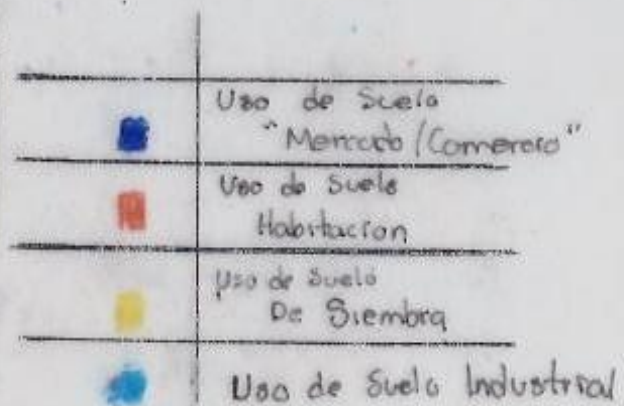 Uso de Suelo
"Mercado/Comercio"
Uso de Suelo
Habitacion
Uso de Suelo
De Siembra
Uso de Suelo Industrial